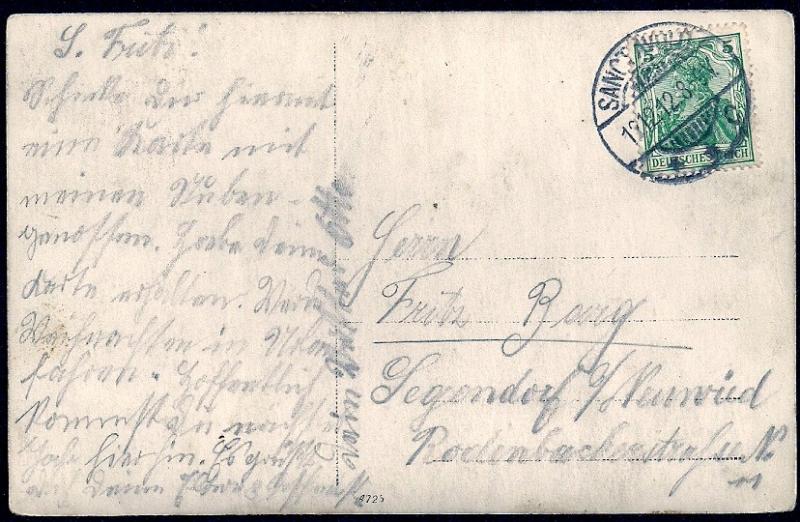 L. Fritz!
Schicke Dir hiermit
eine Karte mit
meinen Stuben-
genossen. Habe deine
Karte erhalten. Werde
Weihnachten in Urlaub
fahren. Hoffentlich
kommst du nächstes
Jahr hierhin. Es grüßt
dich deine
SANCT
12 8-9
5
5
DEUTSCHES REICH
Herrn
Fritz Borg
Segendorf b/Neuwied
Rodenbacherstraße No
11
4725